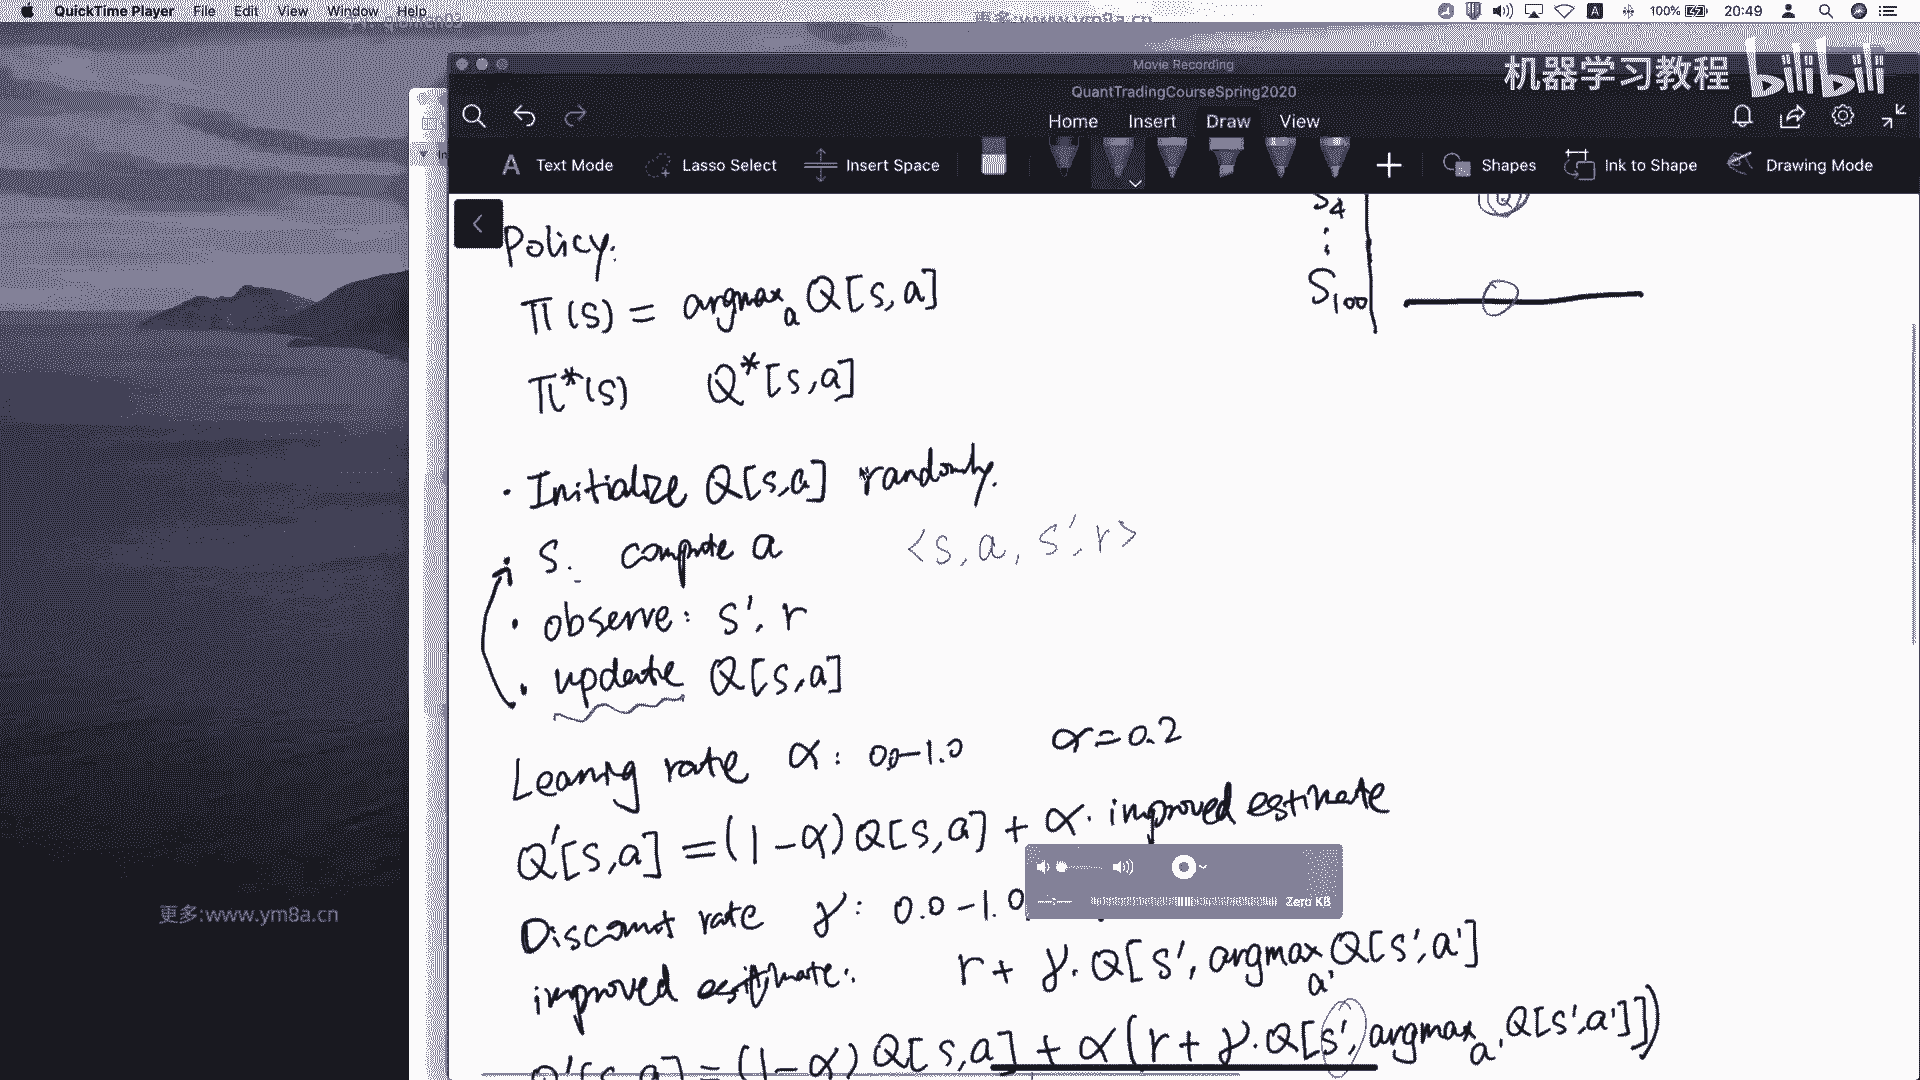 QuickTime Player File Edit View Window Help
100% 20:49
更多:www.ym8a.cn
Movie Recording
机器学习教程 bilibili
QuantTradingCourseSpring2020
Home Insert Draw View
Text Mode Lasso Select Insert Space Shapes Ink to Shape Drawing Mode
S4
⋮
S100
Policy:
π(s) = argmax_a Q[s,a]
π*(s) Q*[s,a]
· Initialize Q[s,a] randomly.
· S. compute a <s, a, s', r>
· observe: s', r
· update Q[s,a]
Learning rate α: 0.0-1.0 α=0.2
Q'[s,a] = (1-α) Q[s,a] + α· improved estimate
Zero KB
更多:www.ym8a.cn
Discount rate γ: 0.0-1.0
improved estimate: r + γ· Q[s', argmax_a' Q[s',a']
Q'[s,a] = (1-α) Q[s,a] + α(r + γ·Q[s', argmax_a' Q[s',a']])